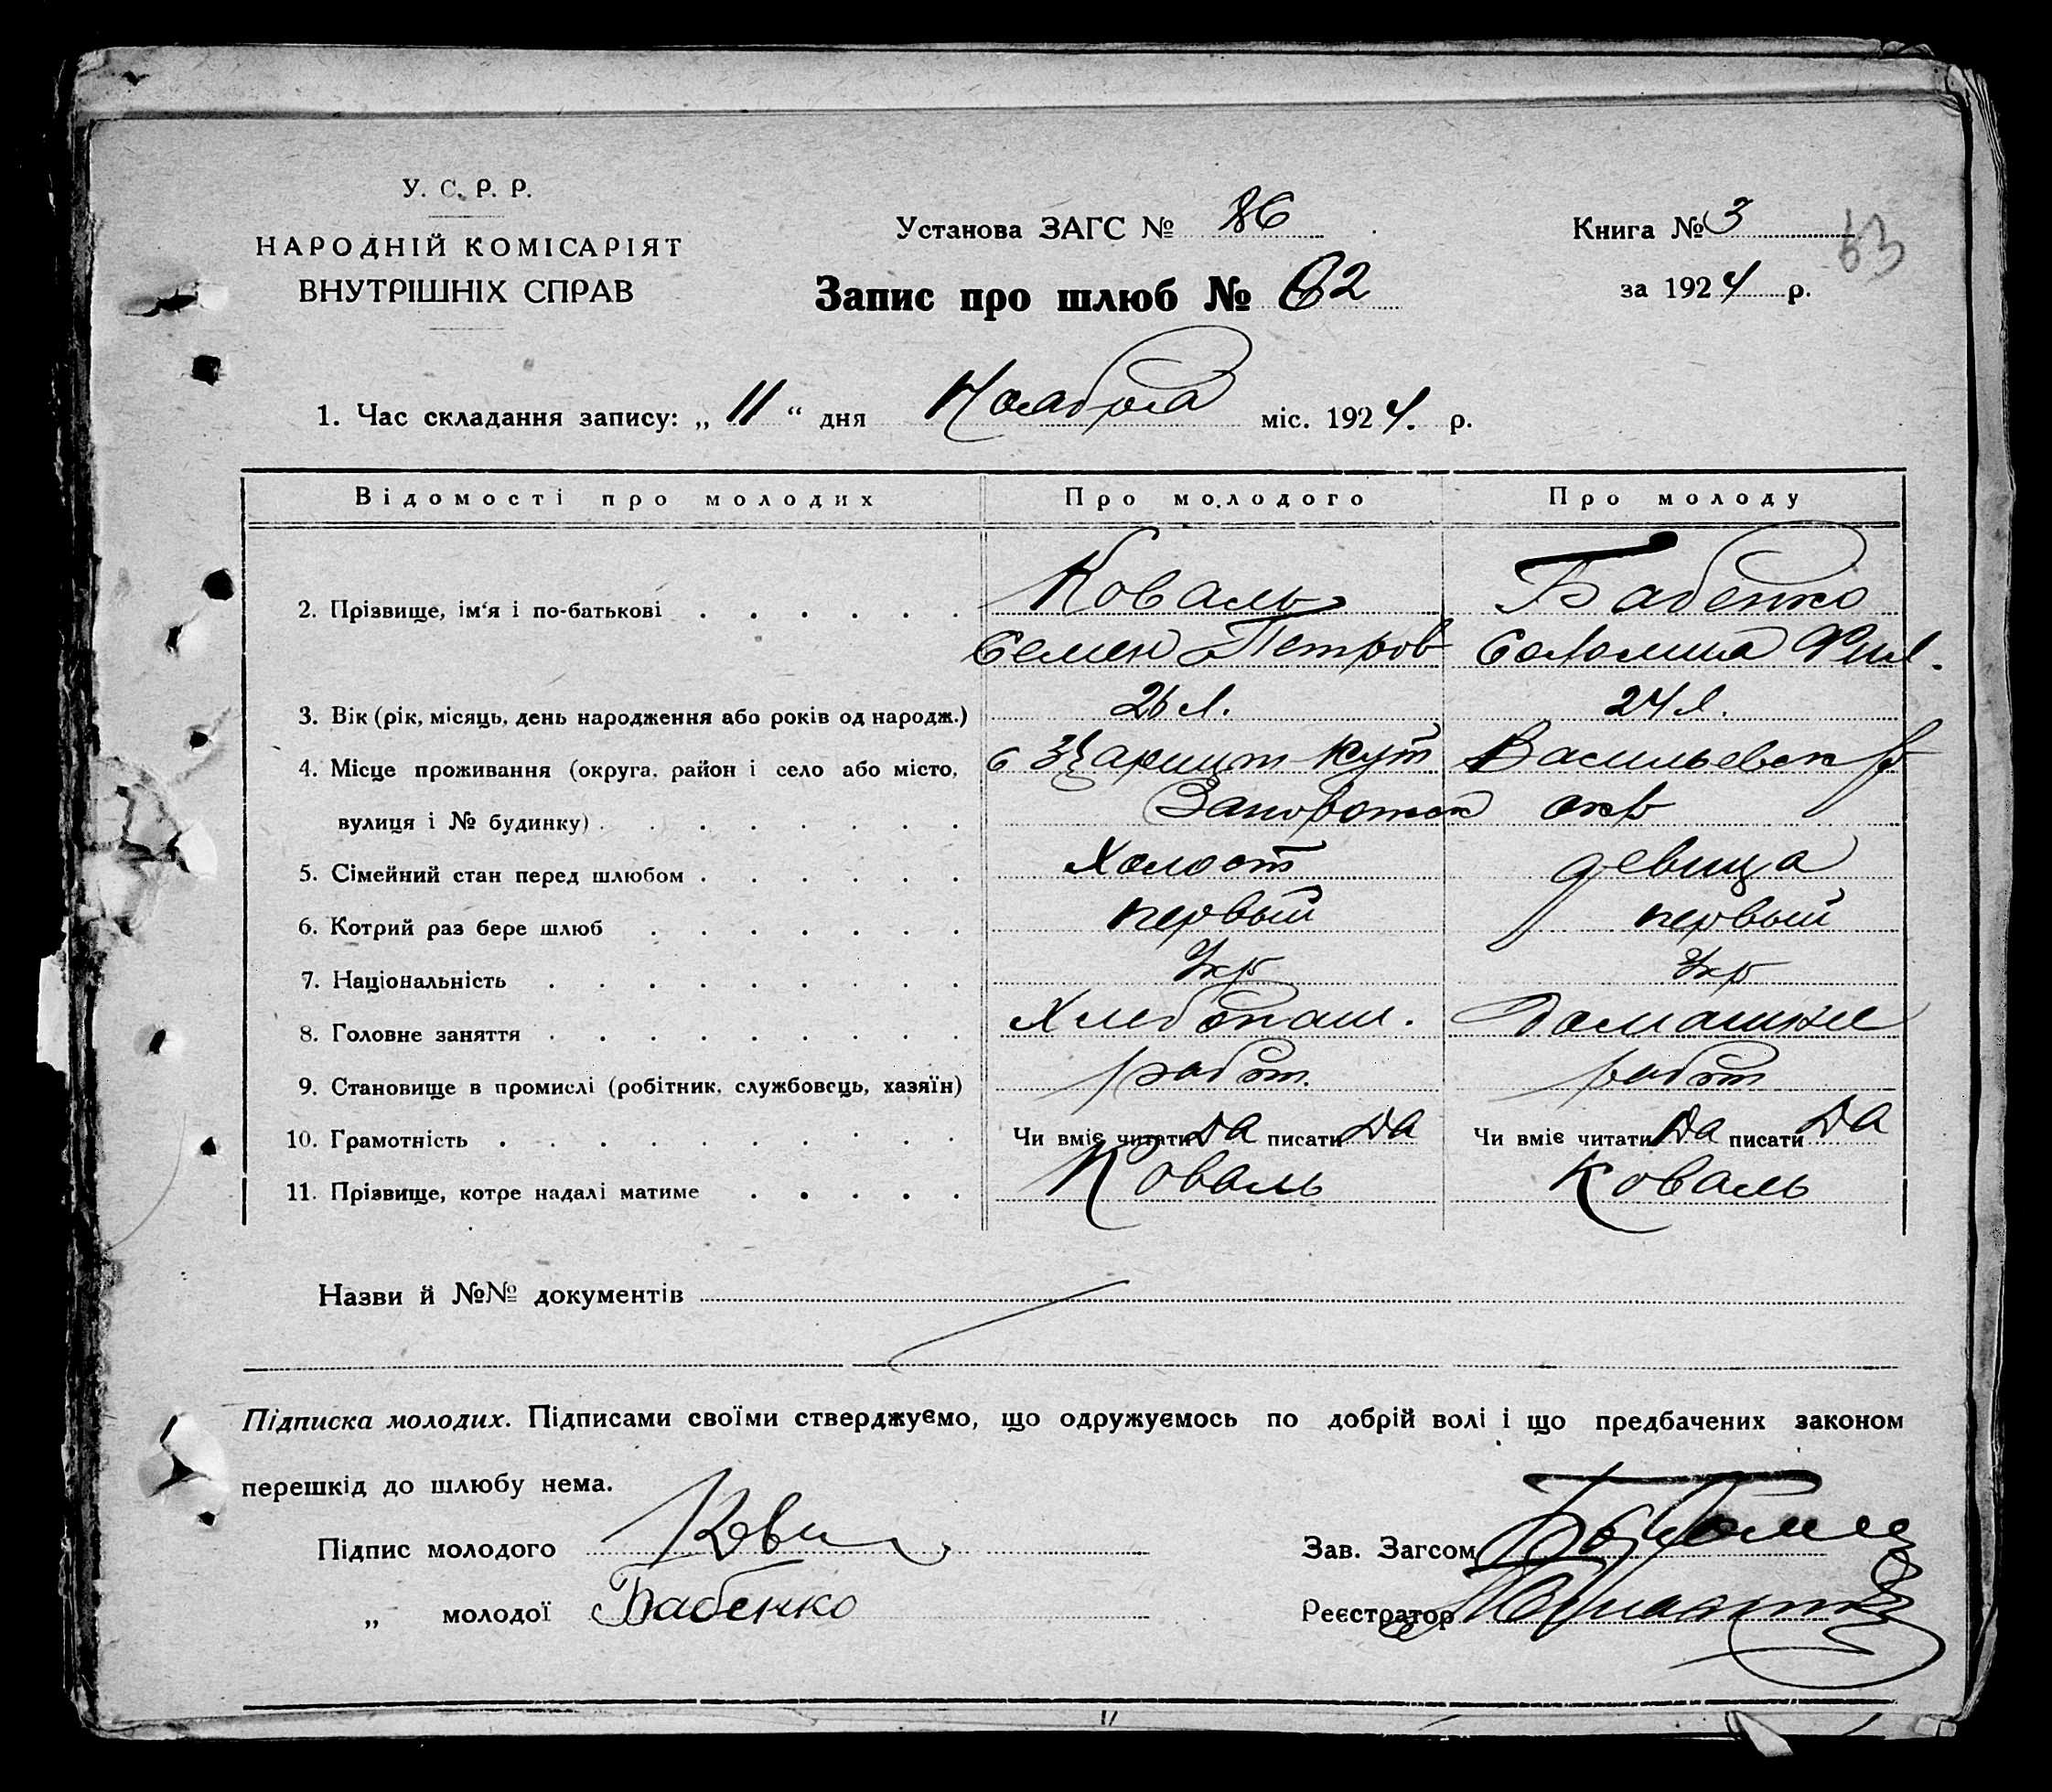 У. С. Р. Р.
НАРОДНІЙ КОМІСАРІЯТ
ВНУТРІШНІХ СПРАВ
Установа ЗАГС № 86
Запис про шлюб № 62
Книга № 3
63
за 1924 р.
1. Час складання запису: „ 11 “ дня Ноября міс. 1924. р.
Відомості про молодих Про молодого Про молоду
2. Прізвище, ім‘я і по-батькові Коваль Бабенко
Семен Петров Соломия Фил.
3. Вік (рік, місяць, день народження або років од народж.) 26 л. 24 л.
4. Місце проживання (округа, район і село або місто, с Царицын Кут Васильевск р
вулиця і № будинку) Запорожск окр
5. Сімейний стан перед шлюбом Холост девица
6. Котрий раз бере шлюб первый первый
7. Національність Укр Укр
8. Головне заняття Хлебопаш. Домашнее
9. Становище в промислі (робітник, службовець, хазяїн) работ. работ
10. Грамотність Чи вміє читати Да писати Да Чи вміє читати Да писати Да
11. Прізвище, котре надалі матиме Коваль Коваль
Назви й №№ документів
Підписка молодих. Підписами своїми стверджуємо, що одружуємось по добрій волі і що предбачених законом
перешкід до шлюбу нема.
Підпис молодого
„ молодої Бабенко
Зав. Загсом
Реєстратор